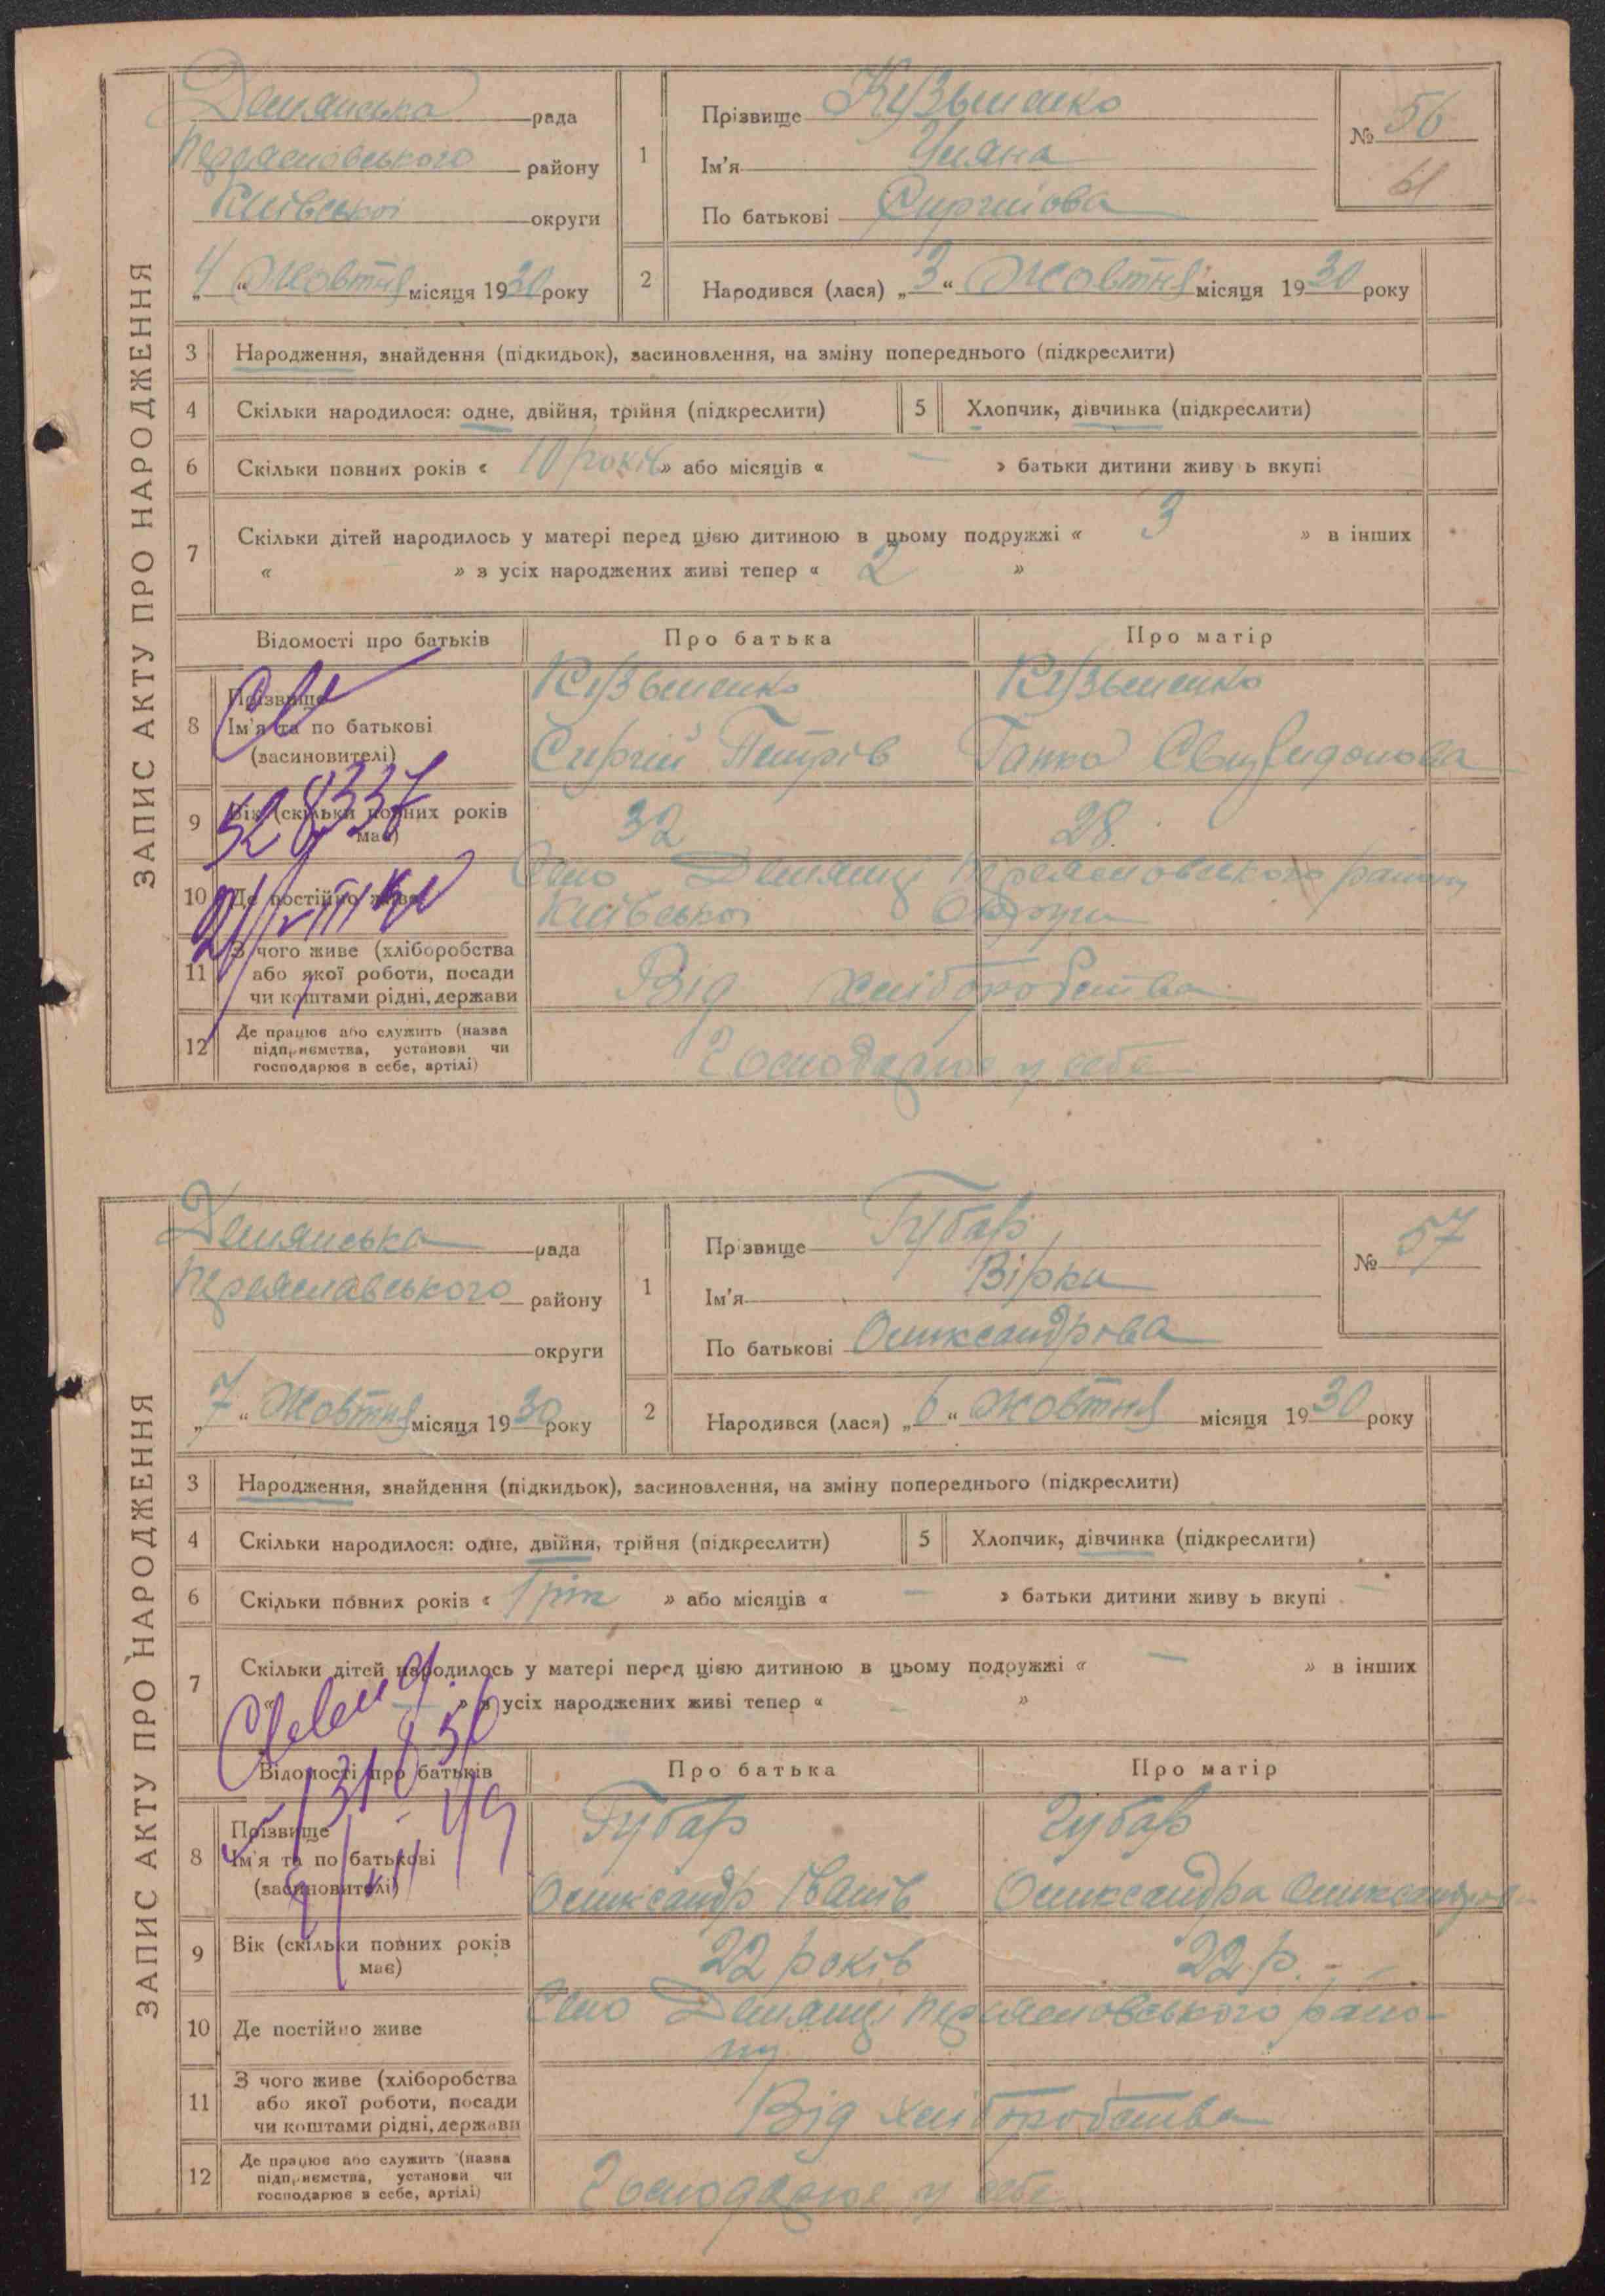 ЗАПИС АКТУ ПРО НАРОДЖЕННЯ
Демянська рада
Переясловського району
Київської округи
„4“ Жовтня місяця 1930 року
1
Прізвище Кузьменко
Ім'я Уляна
По батькові Сиргійова
№ 56
61
2
Народився (лася) „3“ Жовтня місяця 1930 року
3 Народження, знайдення (підкидьок), засиновлення, на зміну попереднього (підкреслити)
4 Скільки народилося: одне, двійня, трійня (підкреслити) 5 Хлопчик, дівчинка (підкреслити)
6 Скільки повних років « 10 років » або місяців « — » батьки дитини живу ь вкупі
7 Скільки дітей народилось у матері перед цією дитиною в цьому подружжі « 3 » в інших
« » з усіх народжених живі тепер « 2 »
Відомості про батьків Про батька Про матір
8 Прізвище Кузьменко Кузьменко
Ім'я та по батькові
(засиновителі) Сиргій Петрів Ганна
9 Вік (скільки повних років має) 32 28
10 Де постійно живе Село Демянці Переясловського району
Київської Округи
11 З чого живе (хліборобства або якої роботи, посади чи коштами рідні, держави Від хліборобства
12 Де працює або служить (назва підприємства, установи чи господарює в себе, артілі) Господарює у себе
ЗАПИС АКТУ ПРО НАРОДЖЕННЯ
Демянська рада
Переяславського району
округи
„7“ Жовтня місяця 1930 року
1
Прізвище Губар
Ім'я Вірка
По батькові Оликсандрова
№ 57
2
Народився (лася) „6“ жовтня місяця 1930 року
3 Народження, знайдення (підкидьок), засиновлення, на зміну попереднього (підкреслити)
4 Скільки народилося: одне, двійня, трійня (підкреслити) 5 Хлопчик, дівчинка (підкреслити)
6 Скільки повних років « 1 рік » або місяців « — » батьки дитини живу ь вкупі —
7 Скільки дітей народилось у матері перед цією дитиною в цьому подружжі « — » в інших
« — » з усіх народжених живі тепер « — »
Відомості про батьків Про батька Про матір
8 Прізвище Губар Губар
Ім'я та по батькові
(засиновителі) Оликсандр Іванів Оликсандра Оликсандрова
9 Вік (скільки повних років має) 22 років 22 р.
10 Де постійно живе Село Демянці Переясловського райо-
ну
11 З чого живе (хліборобства або якої роботи, посади чи коштами рідні, держави Від хліборобства
12 Де працює або служить (назва підприємства, установи чи господарює в себе, артілі) Господарює у себе